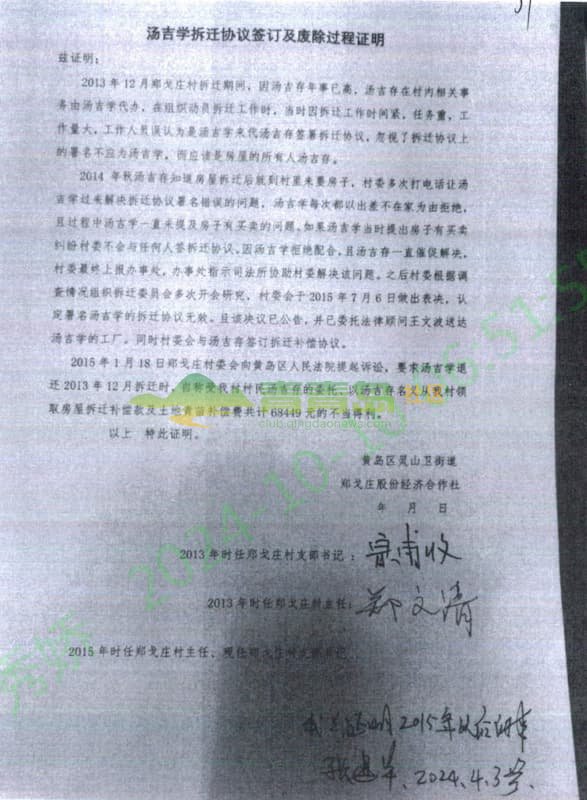 汤吉学拆迁协议签订及废除过程证明
兹证明：
2013年12月郑戈庄村拆迁期间，因汤吉存年事已高，汤吉存在村内相关事
务由汤吉学代办，在组织动员拆迁工作时，当时因拆迁工作时间紧，任务重，工
作量大，工作人员误认为是汤吉学来代汤吉存签署拆迁协议，忽视了拆迁协议上
的署名不应为汤吉学，而应该是房屋的所有人汤吉存。
2014年秋汤吉存知道房屋拆迁后就到村里来要房子，村委多次打电话让汤
吉学过来解决拆迁协议署名错误的问题，汤吉学每次都以出差不在家为由拒绝，
且过程中汤吉学一直未提及房子有买卖的问题，如果汤吉学当时提出房子有买卖
纠纷村委不会与任何人签拆迁协议。因汤吉学拒绝配合，且汤吉存一直催促解决，
村委最终上报办事处，办事处指示司法所协助村委解决该问题。之后村委根据调
查情况组织拆迁委员会多次开会研究，村委会于2015年7月6日做出表决，认
定署名汤吉学的拆迁协议无效。且该决议已公告，并已委托法律顾问王文波送达
汤吉学的工厂。同时村委会与汤吉存签订拆迁补偿协议。
2015年1月18日郑戈庄村委会向黄岛区人民法院提起诉讼，要求汤吉学退
还2013年12月拆迁时，自称受我村村民汤吉存的委托，以汤吉存名义从我村领
取房屋拆迁补偿款及土地青苗补偿费共计68449元的不当得利。
以上 特此证明。
club.qingdaonews.com
黄岛区灵山卫街道
郑戈庄股份经济合作社
年 月 日
2013年时任郑戈庄村支部书记：
2013年时任郑戈庄村主任： 郑文清
2015年时任郑戈庄村主任、现任郑戈庄村支部书记
2015年以后的事
张建 2024.4.3号
2024-10-1 6:51:5